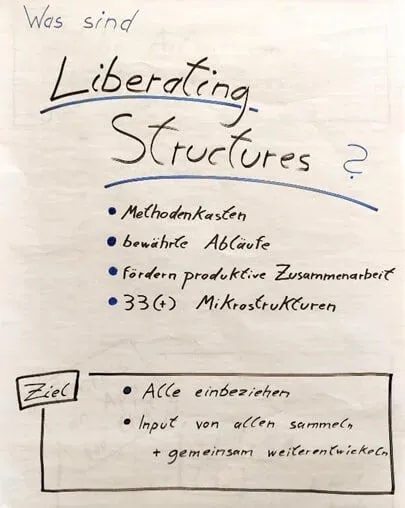 Was sind
Liberating
Structures ?
• Methodenkasten
• bewährte Abläufe
• fördern produktive Zusammenarbeit
• 33(+) Mikrostrukturen
Ziel
• Alle einbeziehen
• Input von allen sammeln
+ gemeinsam weiterentwickeln